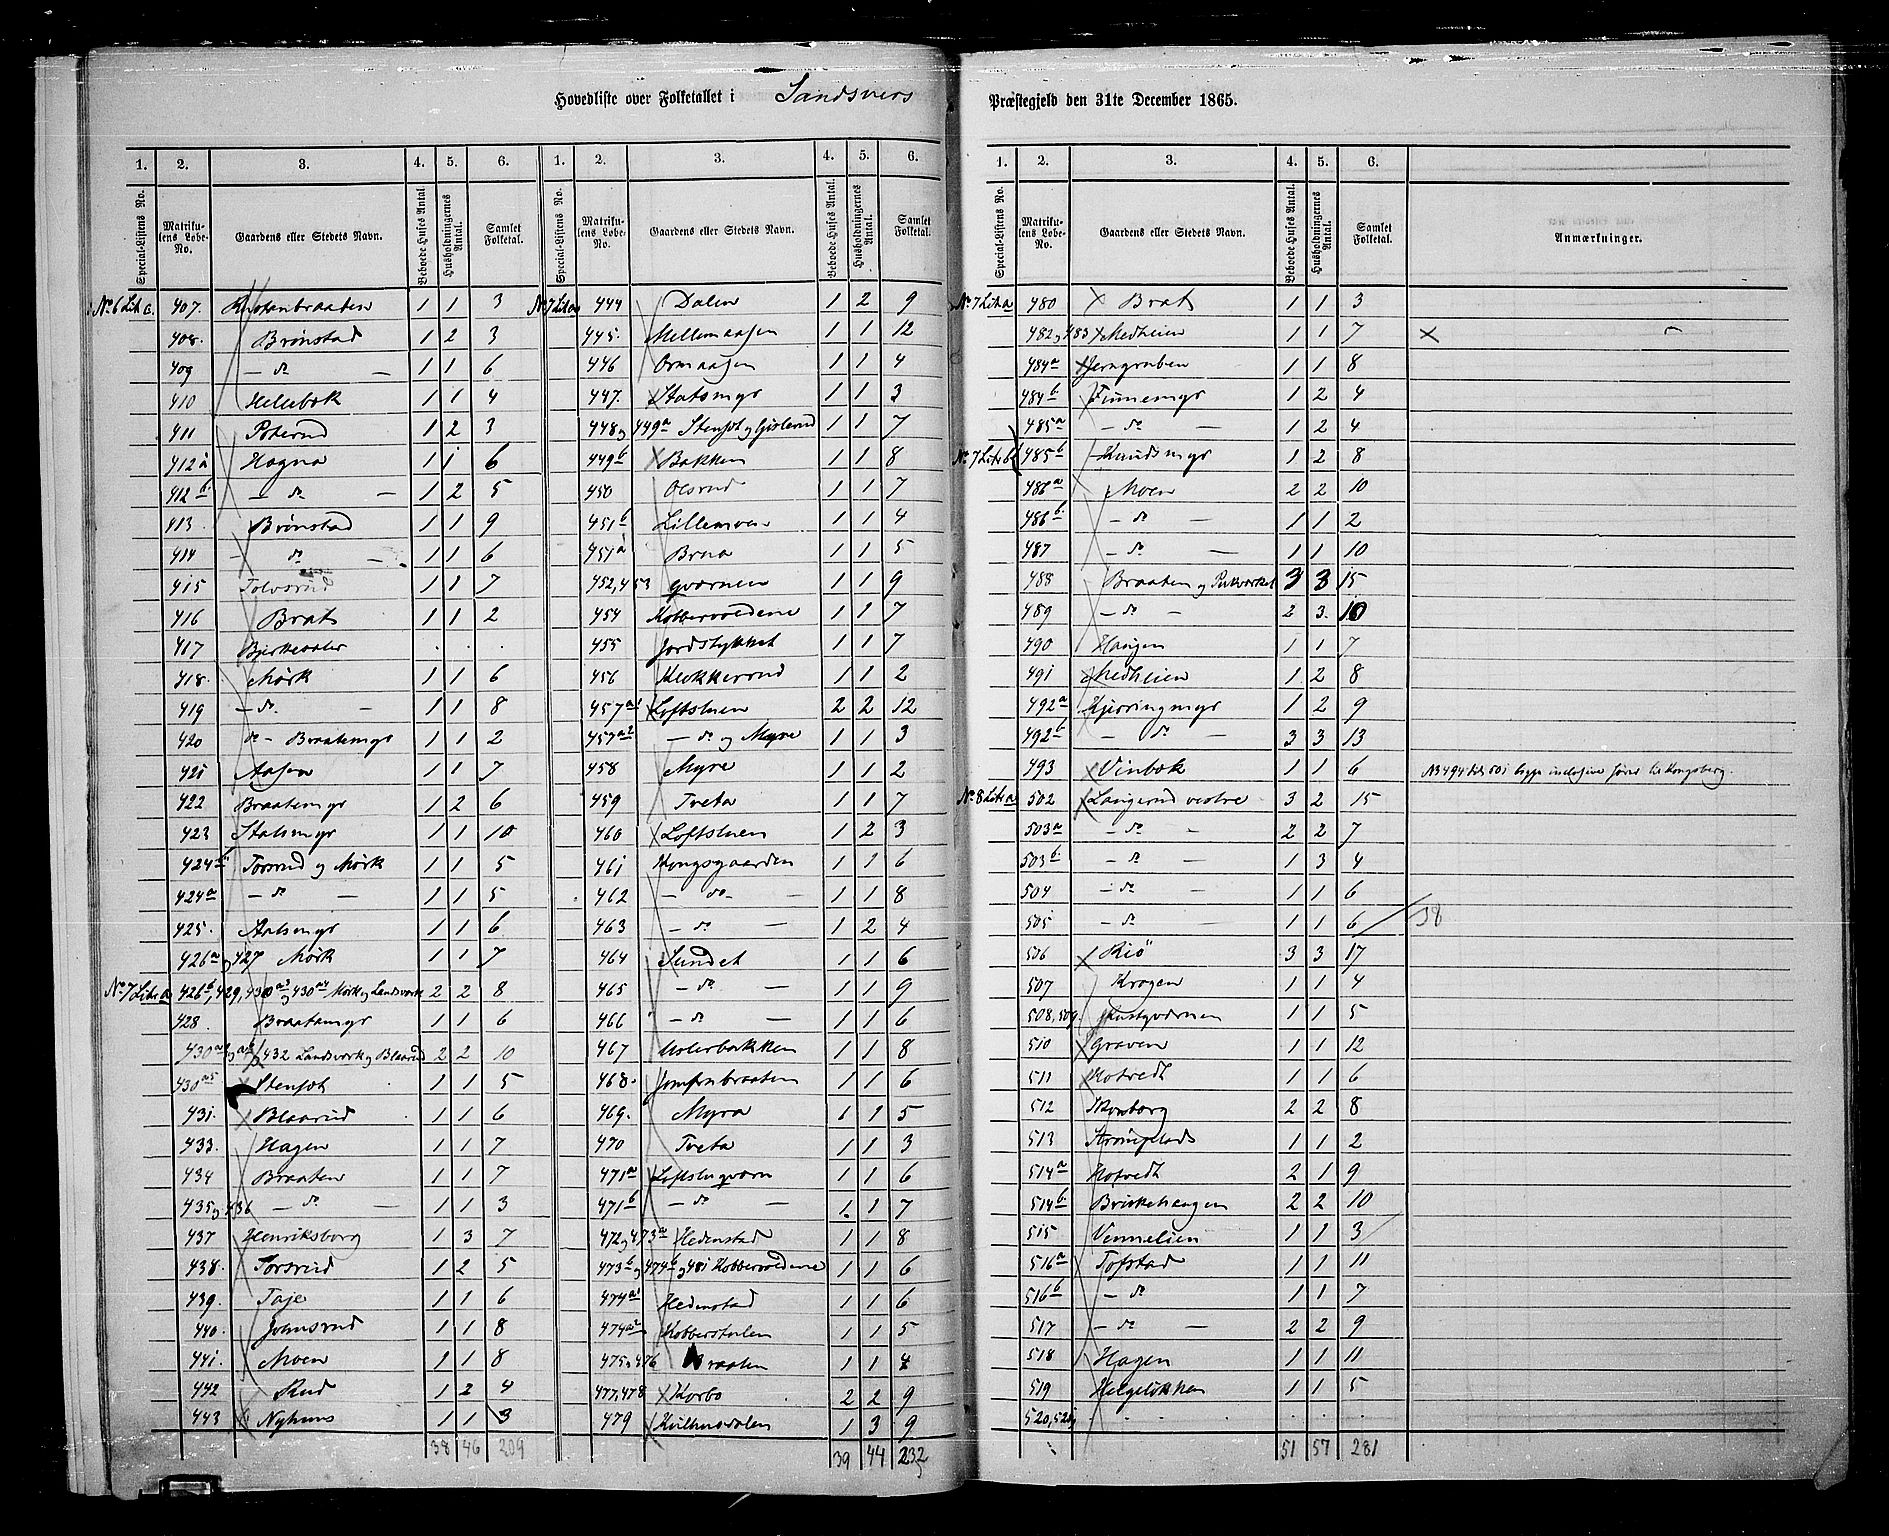 Hovedliste over Folketallet i Sandsvers Præstegjeld den 31te December 1865.
1. 2. 3. 4. 5. 6. 1. 2. 3. 4. 5. 6.
Special-Listens No. Matrikulens Løbe-No. Gaardens eller Stedets Navn. Beboede Huses Antal. Husholdningernes Antal. Samlet Folketal. Special-Listens No. Matrikulens Løbe-No. Gaardens eller Stedets Navn. Beboede Huses Antal. Husholdningernes Antal. Samlet Folketal.
No. 6 Litr. a. 407. 1 1 3
408. Brønstad 1 2 3
409 - do - 1 1 6
410 Hellebæk 1 1 4
411 Poterud 1 2 3
412a Hagna 1 1 6
412b - do - 1 2 5
413. Brønstad 1 1 9
414 - do - 1 1 6
415 Tolvsrud 1 1 7
416 Brats 1 1 2
417 . . .
418. Mørk 1 1 6
419 - do. - 1 1 8
420 do - Braatemyr 1 1 2
421 Aasen 1 1 7
422 Braatemyr 1 2 6
423 Stalsmyr 1 1 10
424b Torsrud og Mørk 1 1 5
424a - do - 1 1 5
425. Stalsmyr 1 1 6
426a og 427 Mørk 1 1 7
No. 7 Litr a 426b, 429, 430a3 og 430a4 Mørk og Landsværk 2 2 8
428. Braatemyr 1 1 6
432 Landsværk og Blaarud 2 2 10
430a5 Stenset 1 1 5
431. Blaarud 1 1 6
433. Hagen 1 1 7
434 Braaten 1 1 7
435 og 436 - do - 1 1 3
437 Henriksborg 1 3 7
438. Torsrud 1 2 5
439. Taje 1 1 6
440. Johnsrud 1 1 8
441. Moen 1 1 8
442 Rud 1 2 4
443 Nyhuus 1 1 3
38 46 209
No 7 Litr a 444 Dalen 1 2 9
445. Mellemaasen 1 1 12
446 Ormaasen 1 1 4
447. Statsmyr 1 1 3
448 og 449a Stenset og Gislerud 1 1 7
449b Bakken 1 1 8
450 Olsrud 1 1 7
451b Lillemoen 1 1 4
451a Brua 1 1 5
452, 453 Qværnen 1 1 9
454 Kobbervoldene 1 1 7
455 Jordstykket 1 1 7
456 Klokkerud 1 1 2
457a1 Loftsluen 2 2 12
457a2 - do og Myre 1 1 3
458 Myre 1 1 2
459 Tveta 1 1 7
460 Loftsluen 1 2 3
461 Kongsgaarden 1 1 6
462 - do - 1 1 8
463 - do - 1 2 4
464 Sundet 1 1 6
465 - do - 1 1 9
466 - do - 1 1 6
467 Mølerbakken 1 1 8
468. Jomfrubraaten 1 1 6
469. Myra 1 1 5
470 Tveta 1 1 3
471a Loftsluqværn 1 1 6
471b - do - 1 1 7
472 og 473a Hedenstad 1 1 8
473b og 474b og 481 Kobbervoldene 1 1 6
474a1 Hedenstad 1 1 6
474a2 Kobberstulen 1 1 5
475, 476 Braaten 1 1 4
477, 478 Korbo 2 2 9
479 Kulhusdalen 1 3 9
39 44 232
1. 2. 3. 4. 5. 6.
Special-Listens No. Matrikulens Løbe-No. Gaardens eller Stedets Navn. Beboede Huses Antal. Husholdningernes Antal. Samlet Folketal. Anmærkninger.
No. 7 Litr a 480 Brats 1 1 3
482 og 483 Medheien 1 1 7 ×
484a Jerngruben 1 1 8
484b Finnemyr 1 2 4
485a - do - 1 2 4
No. 7 Litr b 485b Knudsmyr 1 2 8
486a Moen 2 2 10
486b - do - 1 1 2
487 - do - 1 1 10
488 Braaten og Pukværket 3 3 15
489 - do - 2 3. 10
490 Haugen 1 1 7
491 Medheien 1 2 8
492a Kjerringmyr 1 2 9
492b - do - 3 3 13
493 Vinbæk 1 1 6 No 494 til 501 ligge inclusive føres til Kongsberg.
No. 8 Litr a 502 Langerud vestre 3 2 15
503a - do - 2 2 7
503b - do - 1 3 4
504 - do - 1 1 6
505 - do - 1 1 6 38
506 Riø 3 3 17
507 Kragen 1 1 4
508, 509. 1 1 5
510 Graven 1 1 12
511 Hotvedt 1 1 6
512 Skonborg 2 2 8
513 Strømplads 1 1 2
514a Hotvedt 2 1 9
514b Birkehaugen 2 2 10
515 Vennelien 1 1 3
516a Tofstad 1 1 11
516b - do 1 1 7
517 - do - 2 2 9
518 Hagen 1 1 11
519 Helgeløkken 1 1 5
520, 521 . . .
51 57 281